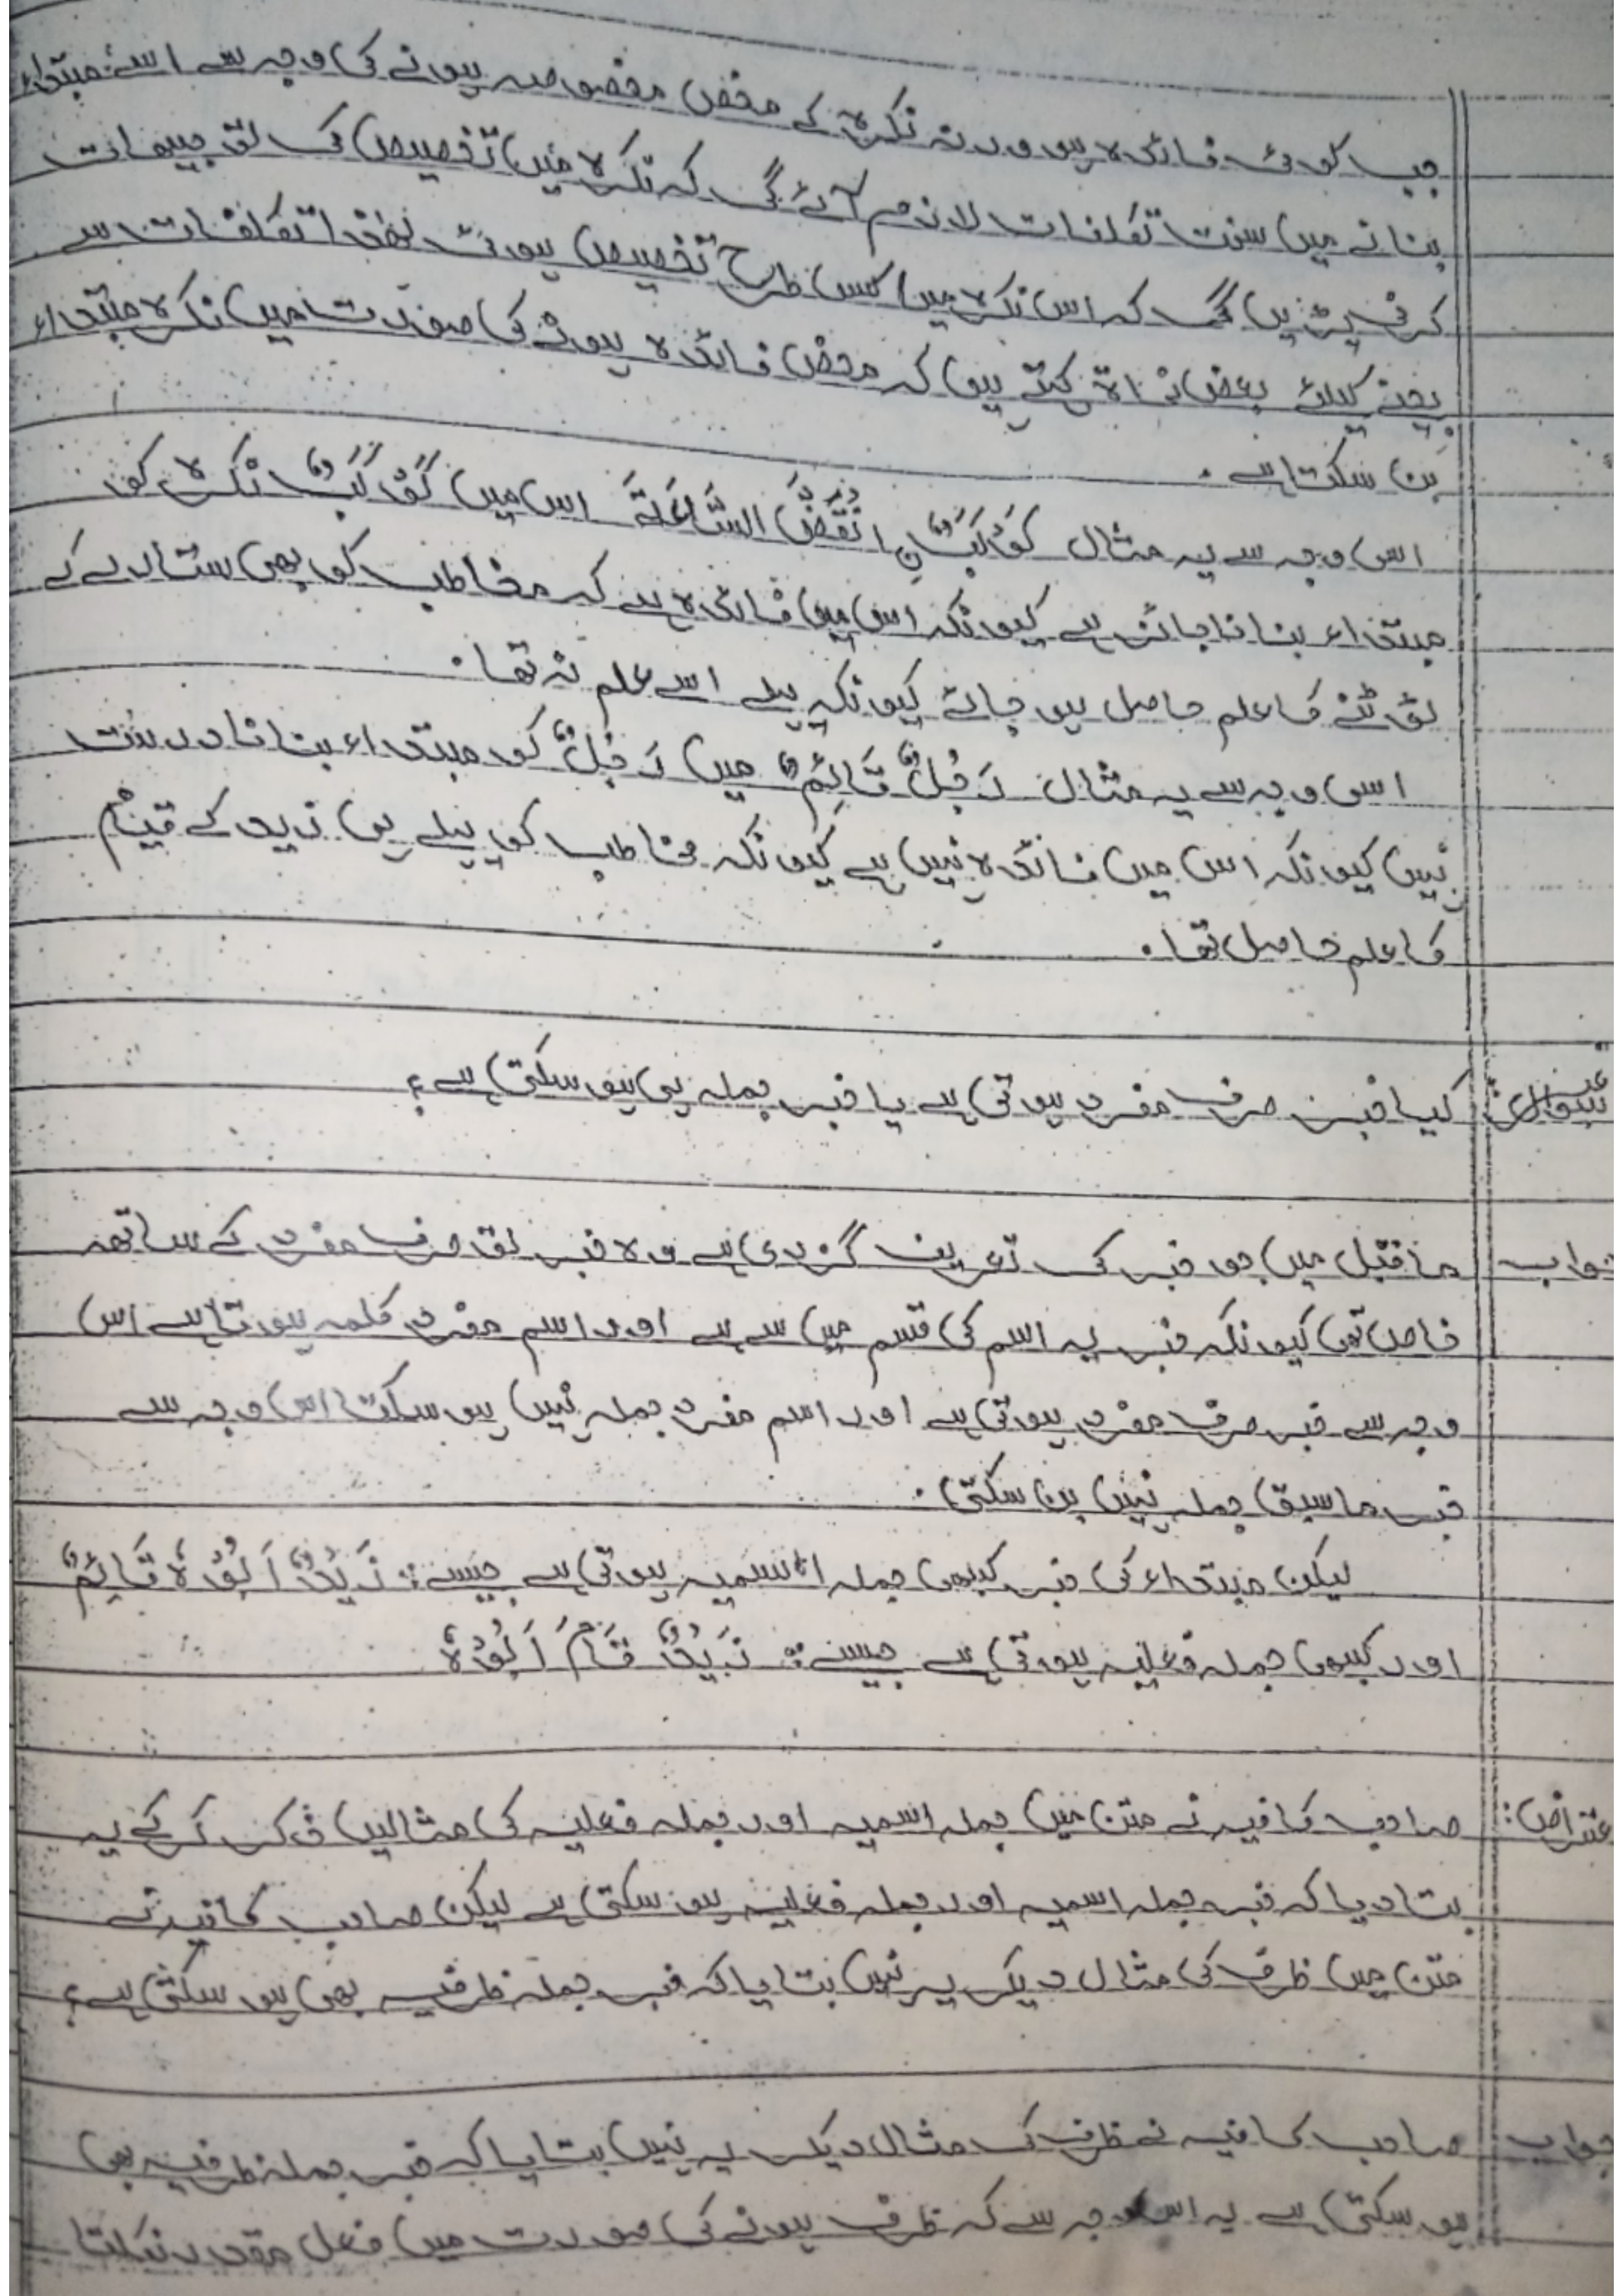 جب کوئی فائدہ ہو ورنہ نکرہ کے محض مخصوصہ ہونے کی وجہ سے اسے مبتداء
بنانے میں سخت تکلفات لازم آئے گی کہ نکرہ میں تخصیص کی توجیہات
کرنی پڑیں گی کہ اس نکرہ میں کس طرح تخصیص ہوئی لہٰذا تکلفات سے
بچنے کیلئے بعض نحاۃ کہتے ہیں کہ محض فائدہ ہونے کی صورت میں نکرہ مبتداء
بن سکتا ہے۔
اسی وجہ سے یہ مثال کَوْکَبٌ اِنْقَضَّ السَّاعَةَ اس میں کَوْکَبٌ نکرہ کو
مبتداء بنانا جائز ہے کیونکہ اس میں فائدہ ہے کہ مخاطب کو بھی ستارے کے
ٹوٹنے کا علم حاصل ہو جائے کیونکہ پہلے اسے علم نہ تھا۔
اسی وجہ سے یہ مثال رَجُلٌ قَائِمٌ میں رَجُلٌ کو مبتداء بنانا درست
نہیں کیونکہ اس میں فائدہ نہیں ہے کیونکہ مخاطب کو پہلے ہی زید کے قیام
کا علم حاصل تھا۔
سوال: کیا خبر صرف مفرد ہوتی ہے یا خبر جملہ بھی ہو سکتی ہے؟
جواب ماقبل میں جو خبر کی تعریف گزری ہے وہ خبر تو صرف مفرد کے ساتھ
خاص تھی کیونکہ خبر یہ اسم کی قسم میں سے ہے اور اسم مفرد کلمہ ہوتا ہے اس
وجہ سے خبر صرف مفرد ہوتی ہے اور اسم مفرد جملہ نہیں ہو سکتا اس وجہ سے
خبر ماسبق جملہ نہیں بن سکتی۔
لیکن مبتداء کی خبر کبھی جملہ اسمیہ ہوتی ہے جیسے: زَیْدٌ اَبُوْهُ قَائِمٌ
اور کبھی جملہ فعلیہ ہوتی ہے جیسے: زَیْدٌ قَامَ اَبُوْهُ
عتراض: صاحب کافیہ نے متن میں جملہ اسمیہ اور جملہ فعلیہ کی مثالیں ذکر کر کے یہ
بتا دیا کہ خبر جملہ اسمیہ اور جملہ فعلیہ ہو سکتی ہے لیکن صاحب کافیہ نے
متن میں ظرف کی مثال دیکر یہ نہیں بتایا کہ خبر جملہ ظرفیہ بھی ہو سکتی ہے؟
جواب صاحب کافیہ نے ظرف کی مثال دیکر یہ نہیں بتایا کہ خبر جملہ ظرفیہ بھی
ہو سکتی ہے یہ اس وجہ سے کہ ظرف ہونے کی صورت میں فعل مقدر نکلتا